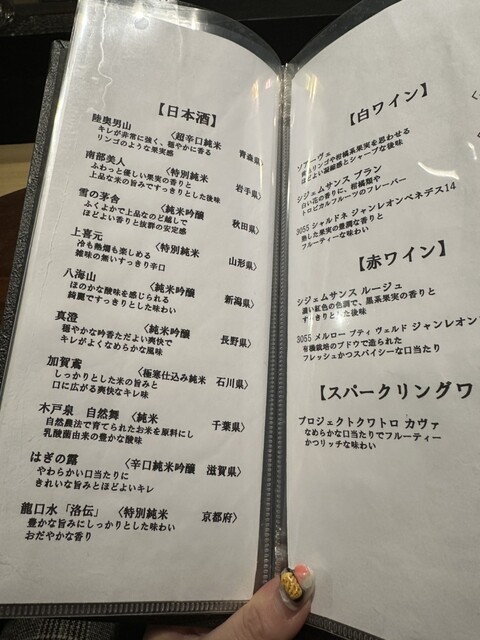 【日本酒】
陸奥男山 〈超辛口純米 青森県〉
キレが非常に強く、穏やかに香る
リンゴのような果実感
南部美人 〈特別純米 岩手県〉
ふわっと優しい果実の香りと
上品な米の旨みですっきりした後味
雪の茅舎 〈純米吟醸 秋田県〉
ふくよかで上品なのど越しで
ほどよい香りと抜群の安定感
上喜元 〈特別純米 山形県〉
冷も熱燗も楽しめる
雑味の無いすっきり辛口
八海山 〈純米吟醸 新潟県〉
ほのかな酸味を感じられる
綺麗ですっきりとした味わい
真澄 〈純米吟醸 長野県〉
穏やかな吟香ただよい爽快で
キレがよくなめらかな風味
加賀鳶 〈極寒仕込み純米 石川県〉
しっかりとした米の旨みと
口に広がる爽快なキレ味
木戸泉 自然舞 〈純米 千葉県〉
自然農法で育てられたお米を原料にし
乳酸菌由来の豊かな酸味
はぎの露 〈辛口純米吟醸 滋賀県〉
やわらかい口当たりに
きれいな旨みとほどよいキレ
龍口水「洛伝」 〈特別純米 京都府〉
豊かな旨みにしっかりとした味わい
おだやかな香り
【白ワイン】
ソアーヴェ
リンゴや柑橘系果実を思わせる
ほどよい凝縮感とシャープな後味
シジェムサンス ブラン
白い花の香りに、柑橘類や
トロピカルフルーツのフレーバー
3055 シャルドネ ジャンレオンペネデス14
熟した果実の豊潤な香りと
フルーティーな味わい
【赤ワイン】
シジェムサンス ルージュ
濃い紅色の色調で、黒系果実の香りと
すっきりとした後味
3055 メルロー プティ ヴェルド ジャンレオン
有機栽培のブドウで造られた
フレッシュかつスパイシーな口当たり
【スパークリングワ
プロジェクトクワトロ カヴァ
なめらかな口当たりでフルーティー
かつリッチな味わい